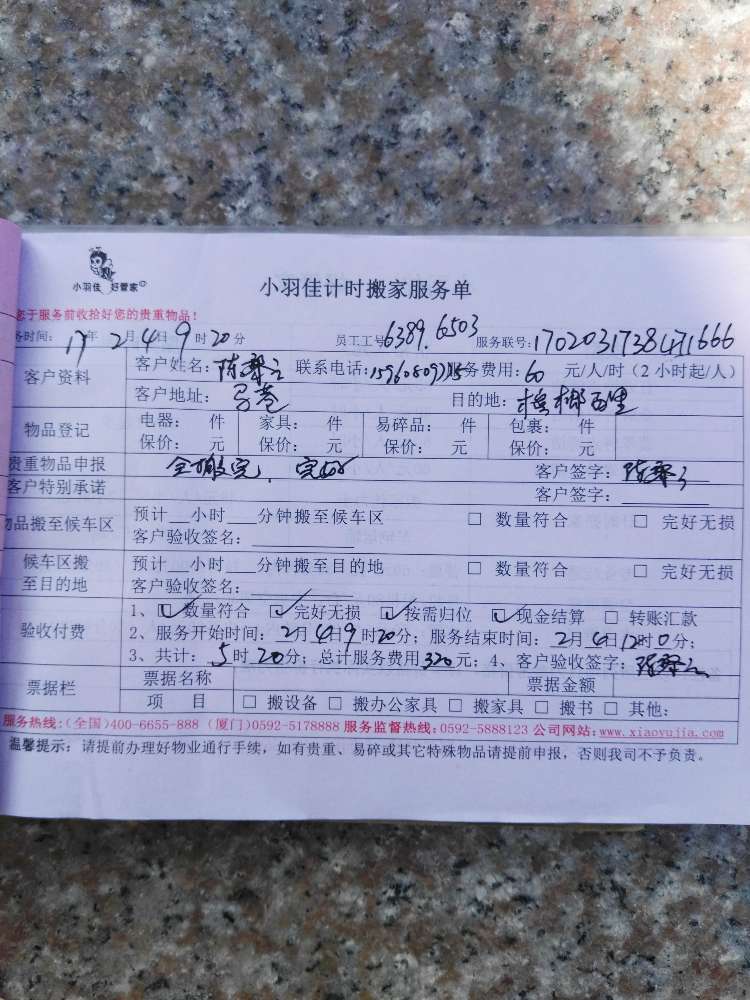 小羽佳 好管家
小羽佳计时搬家服务单
您于服务前收拾好您的贵重物品！
务时间: 17年 2月4日 9时20分 员工工号6389.6503 服务联号:1702031738471666
客户资料 客户姓名: 陈翠云 联系电话: 服务费用: 60 元/人/时 (2小时起/人)
客户地址: 目的地: 槟榔西里
物品登记 电器: 件 家具: 件 易碎品: 件 包裹: 件
保价: 元 保价: 元 保价: 元 保价: 元
贵重物品申报 全部搬完, 完好 客户签字:
客户特别承诺 客户签字:
物品搬至候车区 预计 小时 分钟搬至候车区 □ 数量符合 □ 完好无损
客户验收签名:
候车区搬至目的地 预计 小时 分钟搬至目的地 □ 数量符合 □ 完好无损
客户验收签名:
验收付费 1、☑数量符合 ☑完好无损 ☑按需归位 ☑现金结算 □ 转账汇款
2、服务开始时间: 2月4日9时20分; 服务结束时间: 2月4日12时0分;
3、共计: 5时20分; 总计服务费用320元; 4、客户验收签字:
票据栏 票据名称 票据金额
项 目 □ 搬设备 □ 搬办公家具 □ 搬家具 □ 搬书 □ 其他:
服务热线:(全国)400-6655-888 (厦门)0592-5178888 服务监督热线: 0592-5888123 公司网站:www.xiaoyujia.com
温馨提示: 请提前办理好物业通行手续, 如有贵重、易碎或其它特殊物品请提前申报, 否则我司不予负责。